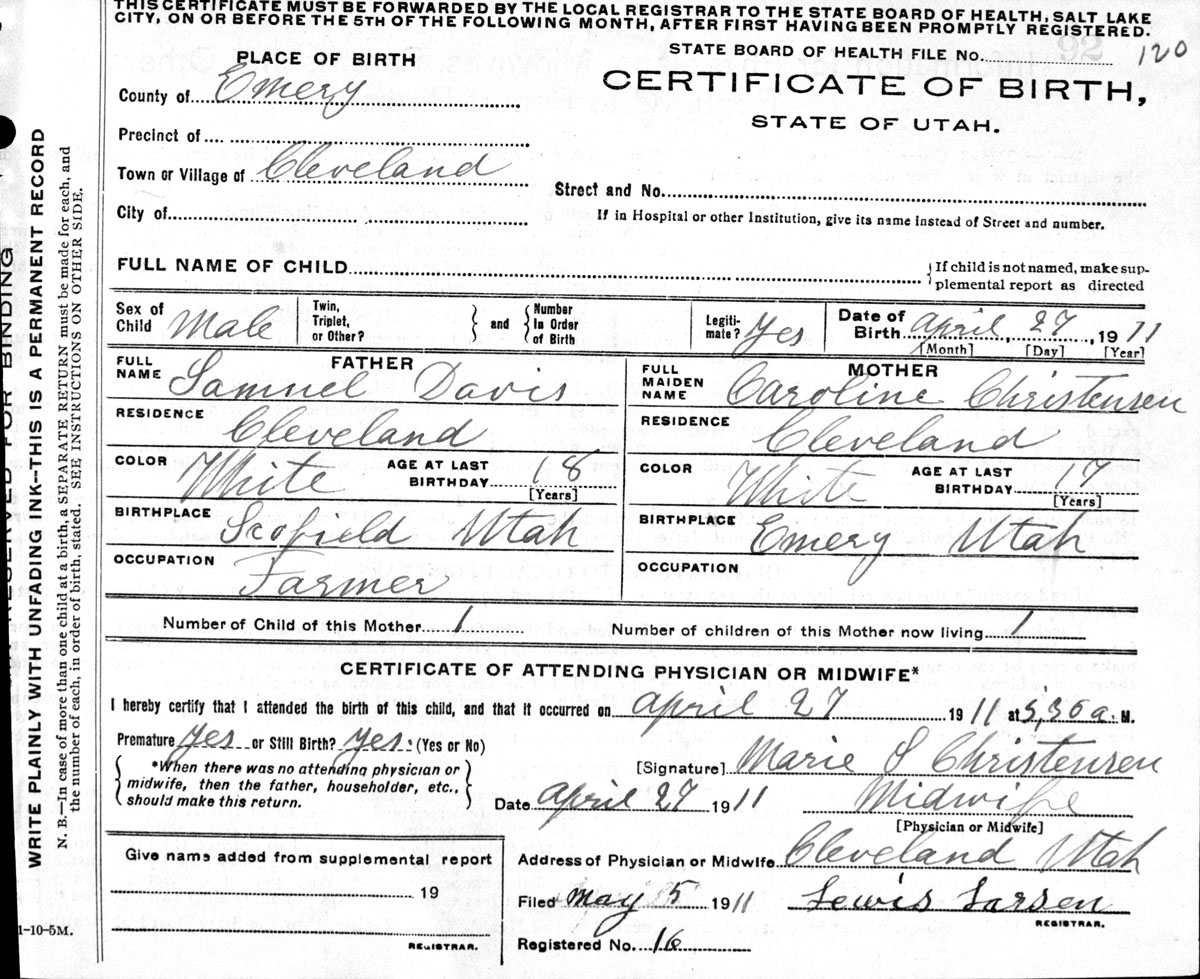 THIS CERTIFICATE MUST BE FORWARDED BY THE LOCAL REGISTRAR TO THE STATE BOARD OF HEALTH, SALT LAKE
CITY, ON OR BEFORE THE 5TH OF THE FOLLOWING MONTH, AFTER FIRST HAVING BEEN PROMPTLY REGISTERED.
STATE BOARD OF HEALTH FILE No. 120
PLACE OF BIRTH
CERTIFICATE OF BIRTH,
STATE OF UTAH.
County of Emery
Precinct of
Town or Village of Cleveland
Street and No.
City of
If in Hospital or other Institution, give its name instead of Street and number.
FULL NAME OF CHILD
If child is not named, make sup-
plemental report as directed
Sex of Child Male
Twin, Triplet, or Other? and Number In Order of Birth
Legiti-mate? Yes
Date of Birth April 27, 1911
[Month] [Day] [Year]
FATHER
FULL NAME Samuel Davis
RESIDENCE Cleveland
COLOR White AGE AT LAST BIRTHDAY 18
[Years]
BIRTHPLACE Scofield Utah
OCCUPATION Farmer
MOTHER
FULL MAIDEN NAME Caroline Christensen
RESIDENCE Cleveland
COLOR White AGE AT LAST BIRTHDAY 17
[Years]
BIRTHPLACE Emery Utah
OCCUPATION
Number of Child of this Mother 1 Number of children of this Mother now living 1
CERTIFICATE OF ATTENDING PHYSICIAN OR MIDWIFE*
I hereby certify that I attended the birth of this child, and that it occurred on April 27 1911 at 5,30 a. M.
Premature yes or Still Birth? yes: (Yes or No)
*When there was no attending physician or
midwife, then the father, householder, etc.,
should make this return.
[Signature] Marie S Christensen
Date April 27 1911 Midwife
[Physician or Midwife]
Address of Physician or Midwife Cleveland Utah
Filed May 5 1911 Lewis Larsen
REGISTRAR.
Registered No. 16
Give name added from supplemental report
19
REGISTRAR.
RESERVED FOR BINDING
WRITE PLAINLY WITH UNFADING INK—THIS IS A PERMANENT RECORD
N. B.—In case of more than one child at a birth, a SEPARATE RETURN must be made for each, and
the number of each, in order of birth, stated. SEE INSTRUCTIONS ON OTHER SIDE.
1-10-5M.